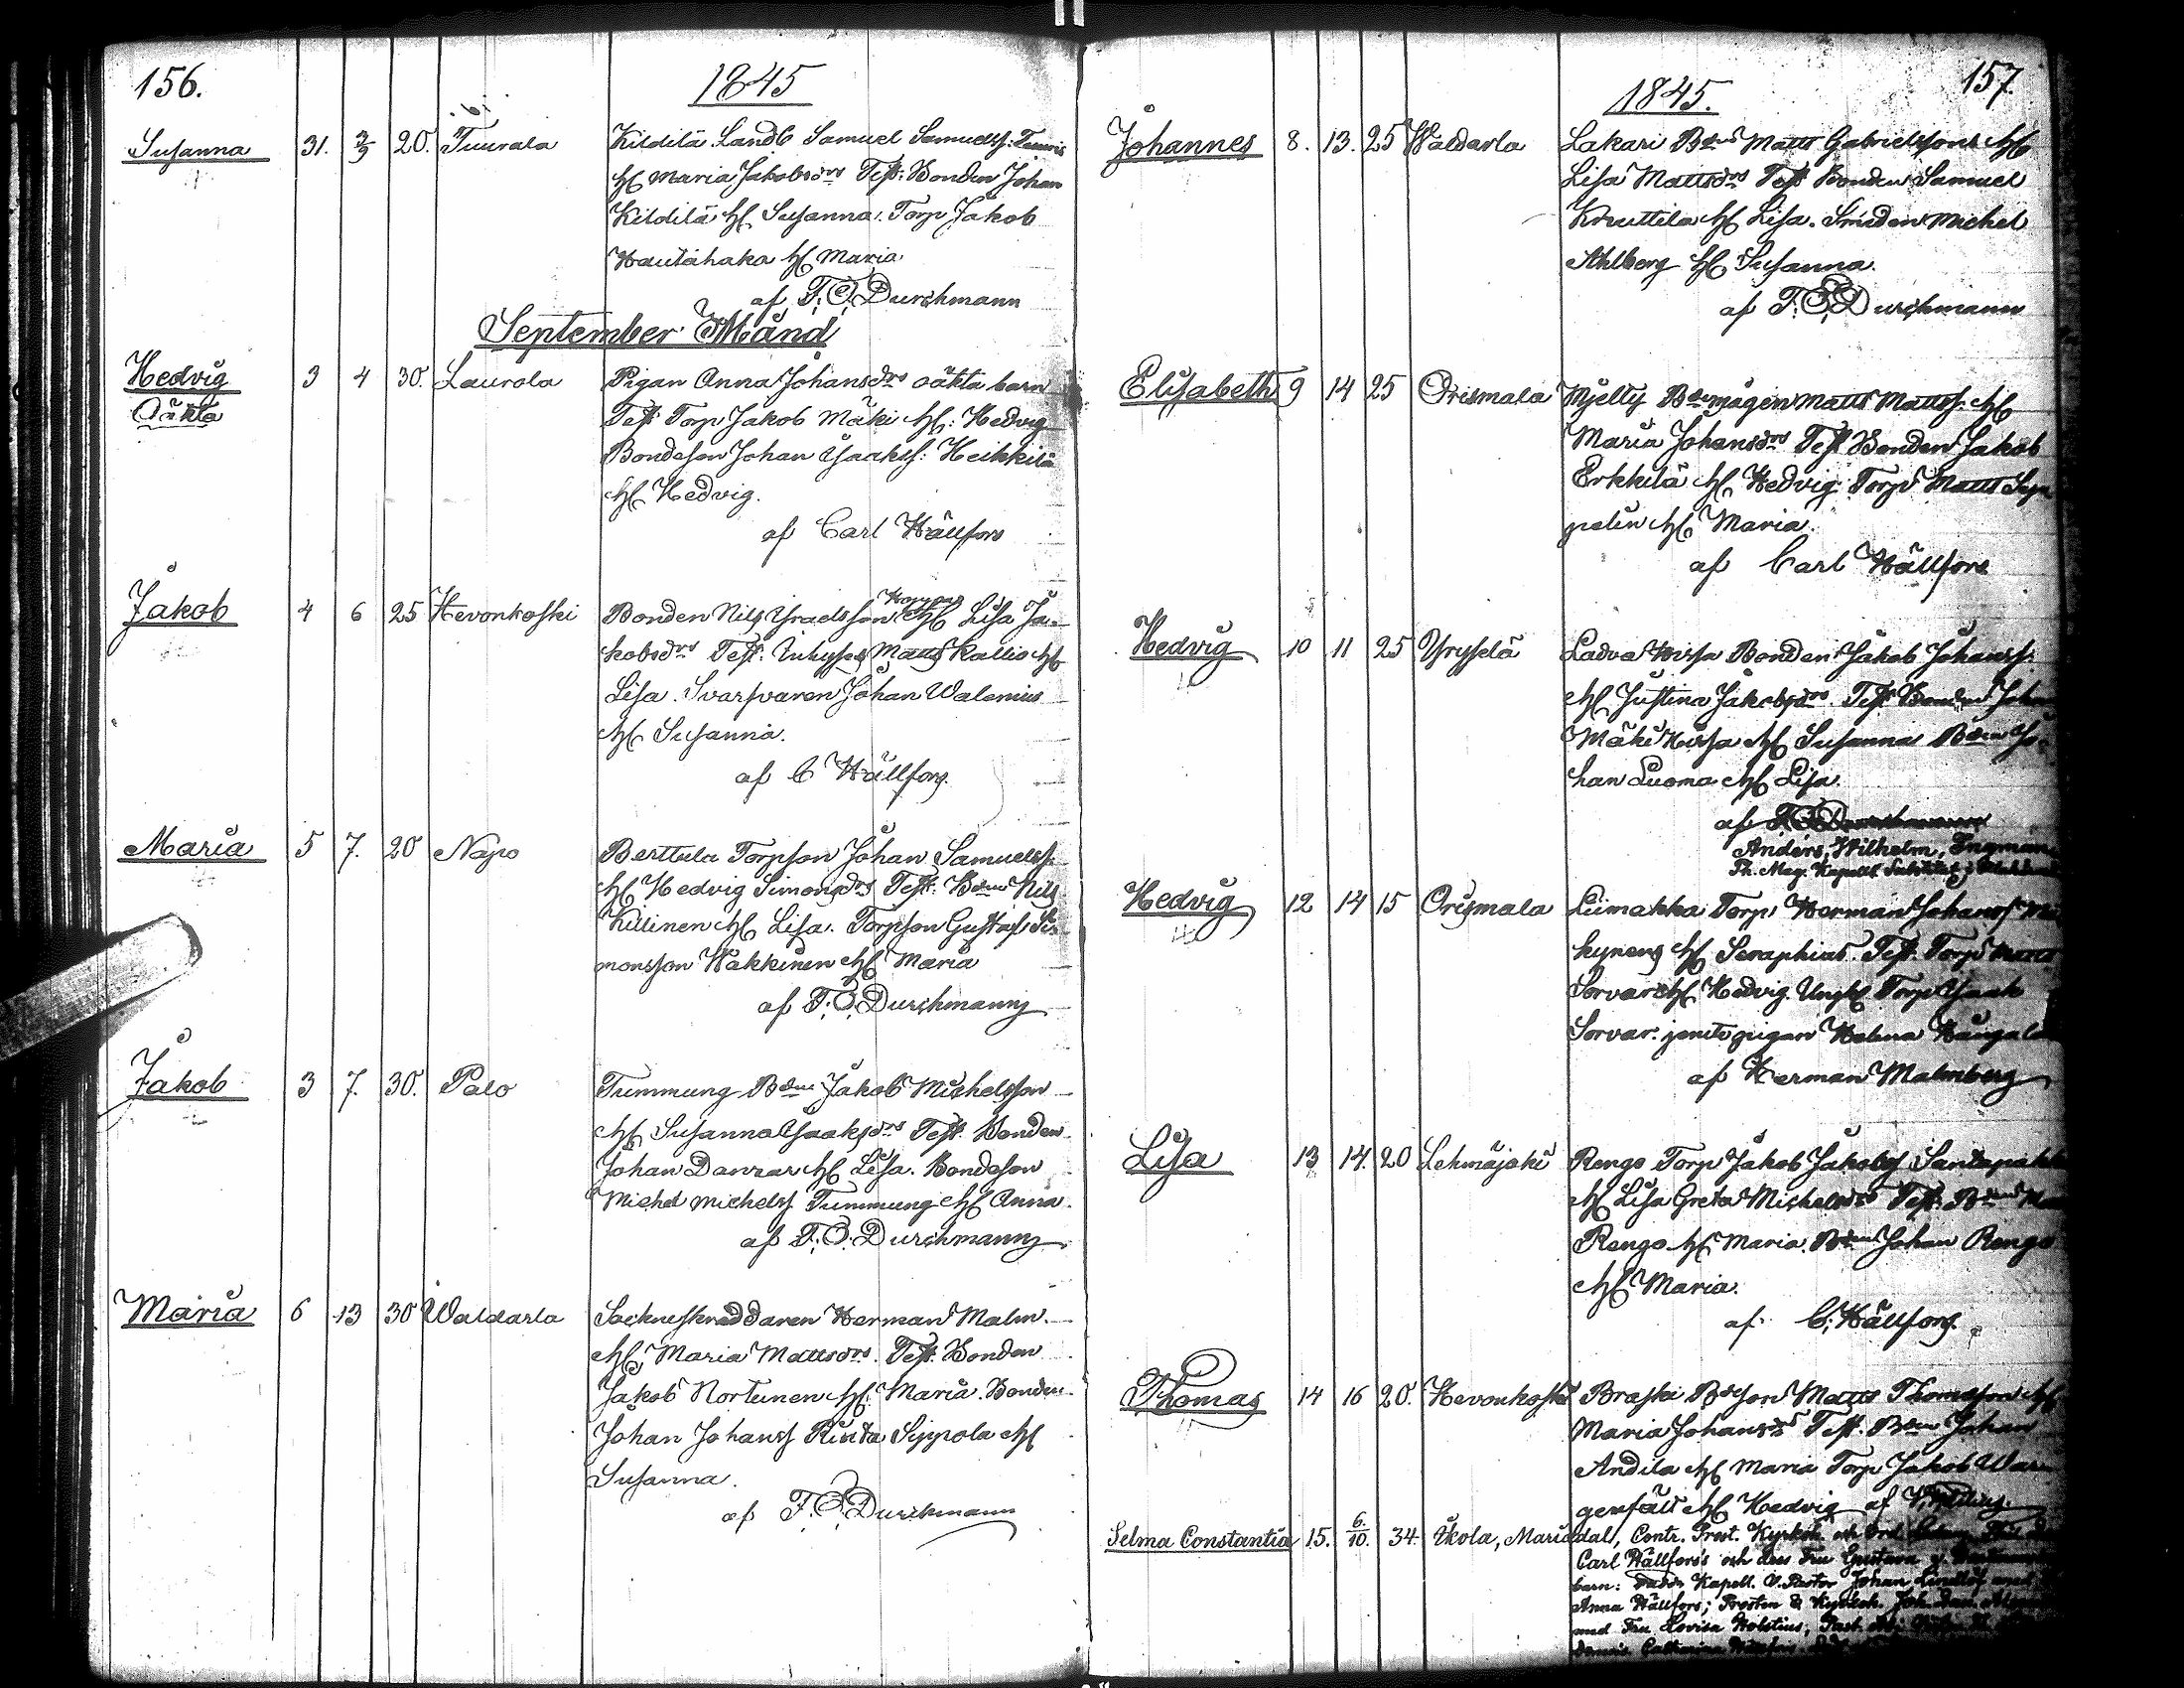 156.
1845
Susanna 31. 2/9 20. Tuurala Kildilä Landb Samuel Samuelss: Tuuris
H Maria Jakobsdrs Test: Bonden Johan
Kildilä H Susanna. Torp Jakob
Hautahaka H Maria
af F. O. Durchmann
September Månd
Hedvig 3 4 30. Laurola Pigan Anna Johansdrs oäkta barn
Oäkta Test Torp Jakob Mäki H: Hedvig
Bondeson Johan Isaakss: Heikkilä
H Hedvig.
af Carl Hällfors
Jakob 4 6 25 Hevonkoski Bonden Nils Israelsson H Lisa Ja-
kobsdrs Test: Inhyses Matts Kallio H
Lisa. Svarfvaren Johan Walenius
H Susanna.
af C Hällfors.
Maria 5 7. 20 Napo Berttula Torpson Johan Samuelss.
H Hedvig Simonsdrs Test: Bdn Nils
Killinen H Lisa. Torpson Gustaf Si-
monsson Hakkinen H Maria
af F. O. Durchmann
Jakob 3 7. 30. Palo Tummung Bdn Jakob Michelsson
H Susanna Isaaksdrs Test. Bonden
Johan Danzar H Lisa. Bondeson
Michel Michelss Tummung H Anna.
af F. O. Durchmann
Maria 6 13 30 Waldarla Sockneskräddaren Herman Malm.
H Maria Mattsdrs. Test. Bonden
Jakob Nortunen H Maria. Bonden
Johan Johanss Rinta Sippola H
Susanna.
af F. O. Durchmann
157.
1845.
Johannes 8. 13. 25 Waldarla Lakari Bdns Matts Gabrielssons H
Lisa Mattsdrs Test Bonden Samuel
Knuttila H Lisa. Smeden Michel
Ahlberg H Susanna.
af F. O. Durchmann
Elisabeth 9 14 25 Orismala Mjelty Bdemågen Matts Mattss. H
Maria Johansdrs Test Bonden Jakob
Erkkilä H Hedvig Torp Matts Sep
pelin H Maria.
af Carl Hällfors
Hedvig 10 11 25 Yryselä Ladva Hirsa Bonden Jakob Johanss:
H Justina Jakobsdrs Test Bonden Johan
Mäki Hirsa H Susanna Bdn Jo-
han Luoma H Lisa.
af
Anders Wilhelm, Ingman
Ph. Mag. Kapells
Hedvig 12 14 15 Orismala Liimakka Torp Herman Johanss
kynens H Seraphias. Test. Torp Matts
Sorvar H Hedvig. Ungk Torp Isaak
Sorvar. jemte pigan Helena
af Herman Malmberg
Lisa 13 14. 20 Lehmäjoki Rengo Torp Jakob Jakobss
H Lisa Greta Michelsdrs Test. Bdn
Rengo H Maria. Bdn Johan Rengo
H Maria.
af C. Hällfors.
Thomas 14 16 20. Hevonkoski Braski Bdeson Matts Thomasson H
Maria Johansdrs Test. Bdn Johan
Andila H Maria Torp Jakob
H Hedvig af
Selma Constantia 15. 6./10. 34. Ikola, Mariedal, Contr. Prost. Kyrkoh. och
Carl Hällfors's och dess Fru Gustava
barn: Kapell. V. Pastor Johan
Anna Hällfors; Prosten & Kyrkoh.
med Fru Lovisa Holstius;